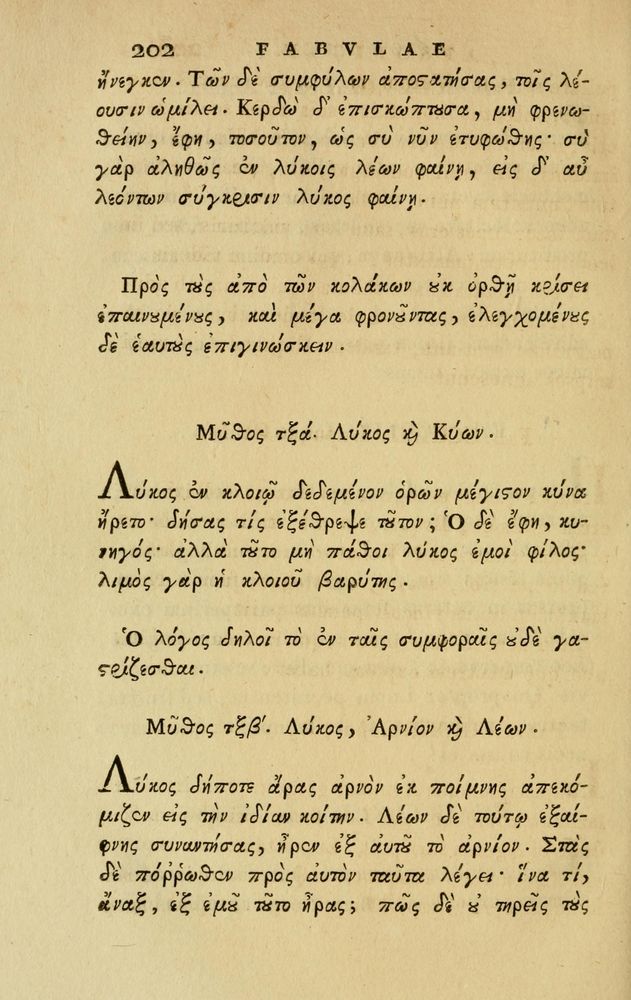 202 FABVLAE
ἤνεγκεν. Τῶν δὲ συμφύλων ἀποστατήσας, τοῖς λέ-
ουσιν ὡμίλει. Κερδὼ δ' ἐπισκώπτουσα, μὴ φρενω-
θείην, ἔφη, τοσοῦτον, ὡς σὺ νῦν ἐτυφώθης· σὺ
γὰρ ἀληθῶς ἐν λύκοις λέων φαίνῃ, εἰς δ' αὖ
λεόντων σύγκρισιν λύκος φαίνῃ.
Πρὸς τοὺς ἀπὸ τῶν κολάκων οὐκ ὀρθῇ κρίσει
ἐπαινουμένους, καὶ μέγα φρονοῦντας, ἐλεγχομένους
δὲ ἑαυτοὺς ἐπιγινώσκειν.
Μῦθος τξά. Λύκος καὶ Κύων.
Λύκος ἐν κλοιῷ δεδεμένον ὁρῶν μέγιστον κύνα
ἤρετο· δήσας τίς ἐξέθρεψε τοῦτον; Ὁ δὲ ἔφη, κυ-
νηγός· ἀλλὰ τοῦτο μὴ πάθοι λύκος ἐμοὶ φίλος·
λιμὸς γὰρ ἢ κλοιοῦ βαρύτης.
Ὁ λόγος δηλοῖ τὸ ἐν ταῖς συμφοραῖς οὐδὲ γα-
στρίζεσθαι.
Μῦθος τξβ'. Λύκος, Ἀρνίον καὶ Λέων.
Λύκος δήποτε ἄρας ἀρνὸν ἐκ ποίμνης ἀπεκό-
μιζεν εἰς τὴν ἰδίαν κοίτην. Λέων δὲ τούτῳ ἐξαί-
φνης συναντήσας, ἦρεν ἐξ αὐτοῦ τὸ ἀρνίον. Στὰς
δὲ πόῤῥωθεν πρὸς αὐτὸν ταῦτα λέγει· ἵνα τί,
ἄναξ, ἐξ ἐμοῦ τοῦτο ἦρας; πῶς δὲ οὐ τηρεῖς τοὺς